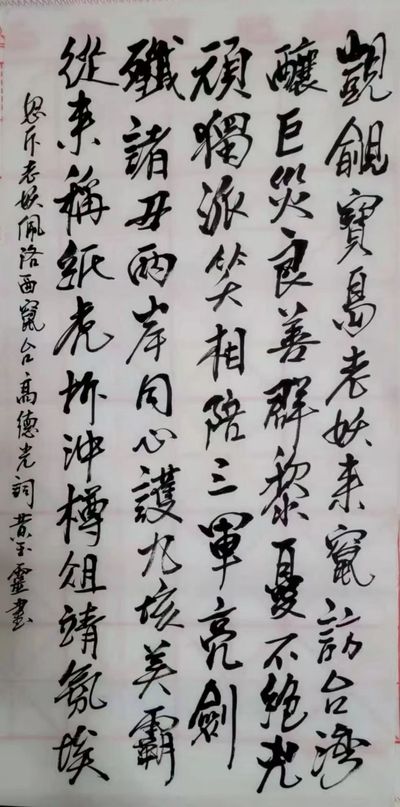 覬覦寶島老妖来竄訪台灣
釀巨災良善群黎憂不絕光
頑獨派笑相陪三軍亮劍
殲諸丑兩岸同心護九垓美霸
從来稱紙虎折沖樽俎靖氛埃
怒斥老妖佩洛西竄台高德光詞黄玉靈書